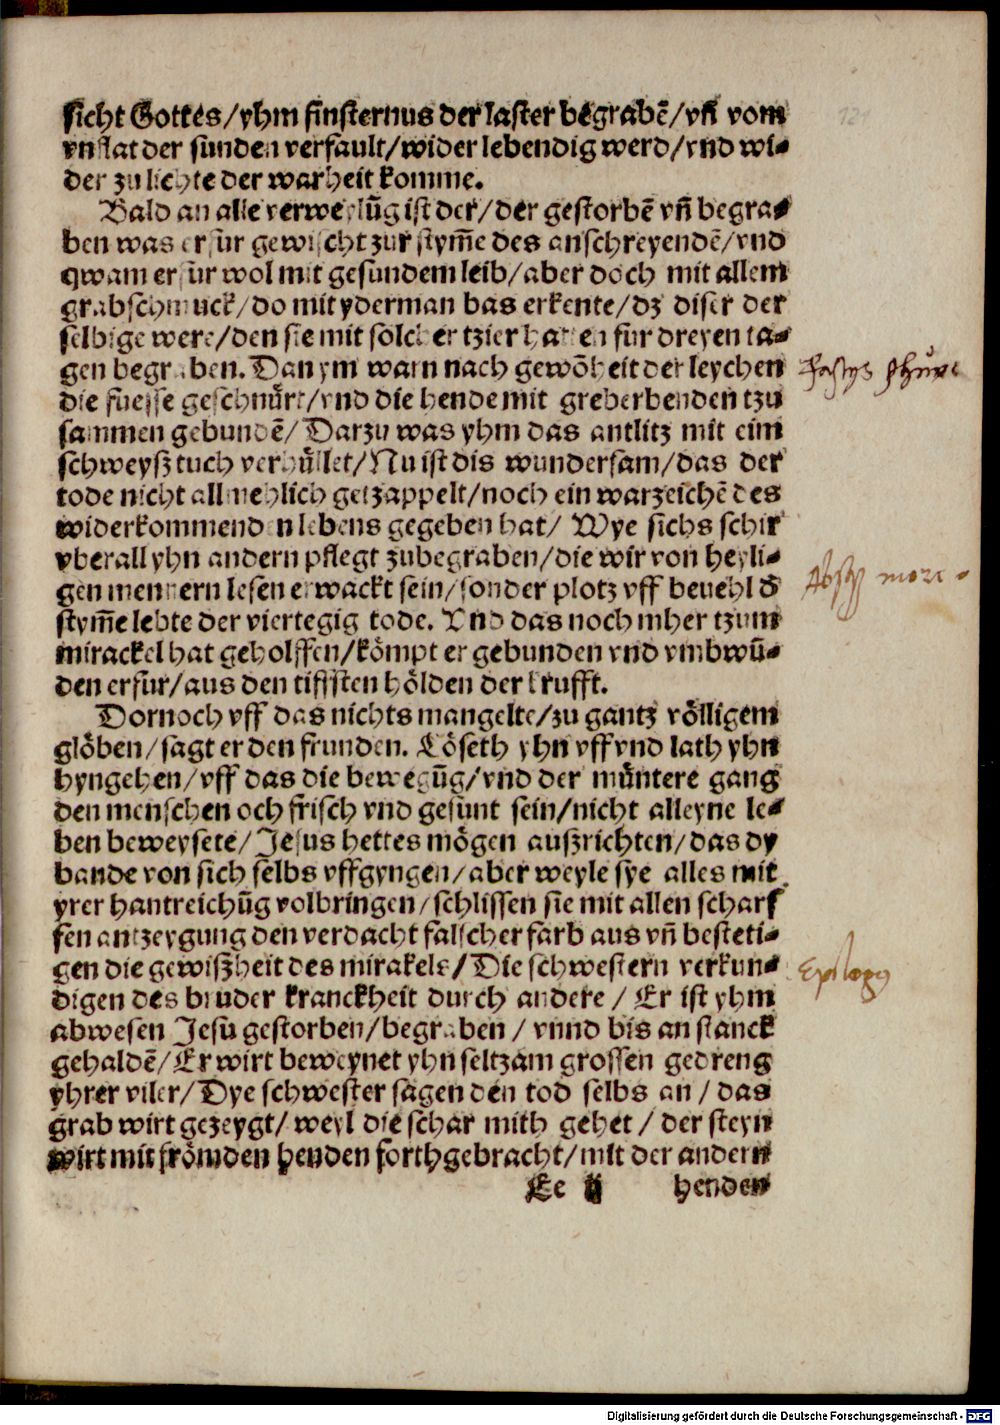 sicht Gottes/yhm finsternus der laster begrabē/vñ vom
vnflat der sunden verfault/wider lebendig werd/vnd wi-
der zu lichte der warheit komme.
Bald an alle verweylūg ist der/der gestorbē vñ begra-
ben was erfür gewischt zur stym̄e des anschreyendē/vnd
qwam erfür wol mit gesundem leib/aber doch mit allem
grabschmuck/do mit yderman bas erkente/dz diser der
selbige were/den sie mit solcher tzier hatten fur dreyen ta-
gen begraben. Dan ym warn nach gewōheit der leychen
die fuesse geschnürt/vnd die hende mit greberbenden tzu
sammen gebundē/Darzu was yhm das antlitz mit eim
schweysz tuch verhüllet/Nu ist dis wundersam/das der
tode nicht allmehlich getzappelt/noch ein warzeichē des
widerkommenden lebens gegeben hat/ Wye sichs schir
vberall yhn andern pflegt zubegraben/die wir von heyli-
gen mennern lesen erwackt sein/sonder plotz vff beuehl d̄
stym̄e lebte der viertegig tode. Vnd das noch mher tzum
mirackel hat geholffen/kömpt er gebunden vnd vmbwū-
den erfür/aus den tiffsten hölden der krufft.
Dornoch vff das nichts mangelte/zu gantz völligem
glöben/sagt er den frunden. Löseth yhn vff vnd lath yhn
hyngehen/vff das die bewegūg/vnd der müntere gang
den menschen och frisch vnd gesunt sein/nicht alleyne le-
ben beweysete/Jesus hettes mögen auszrichten/das dy
bande von sich selbs vffgyngen/aber weyle sye alles mit
yrer hantreichūg volbringen/schlissen sie mit allen scharf
fen antzeygung den verdacht falscher farb aus vñ besteti-
gen die gewiszheit des mirakels/Die schwestern verkun-
digen des bruder kranckheit durch andere/Er ist yhm
abwesen Jesu gestorben/begraben/vnnd bis an stanck
gehaldē/Er wirt beweynet yhn seltzam grossen gedreng
yhrer viler/Dye schwester sagen den tod selbs an/das
grab wirt gezeygt/weyl die schar mith gehet/der steyn
wirt mit frömden henden forthgebracht/mit der andern
Ee ij henden
Epilogus
Digitalisierung gefördert durch die Deutsche Forschungsgemeinschaft - DFG